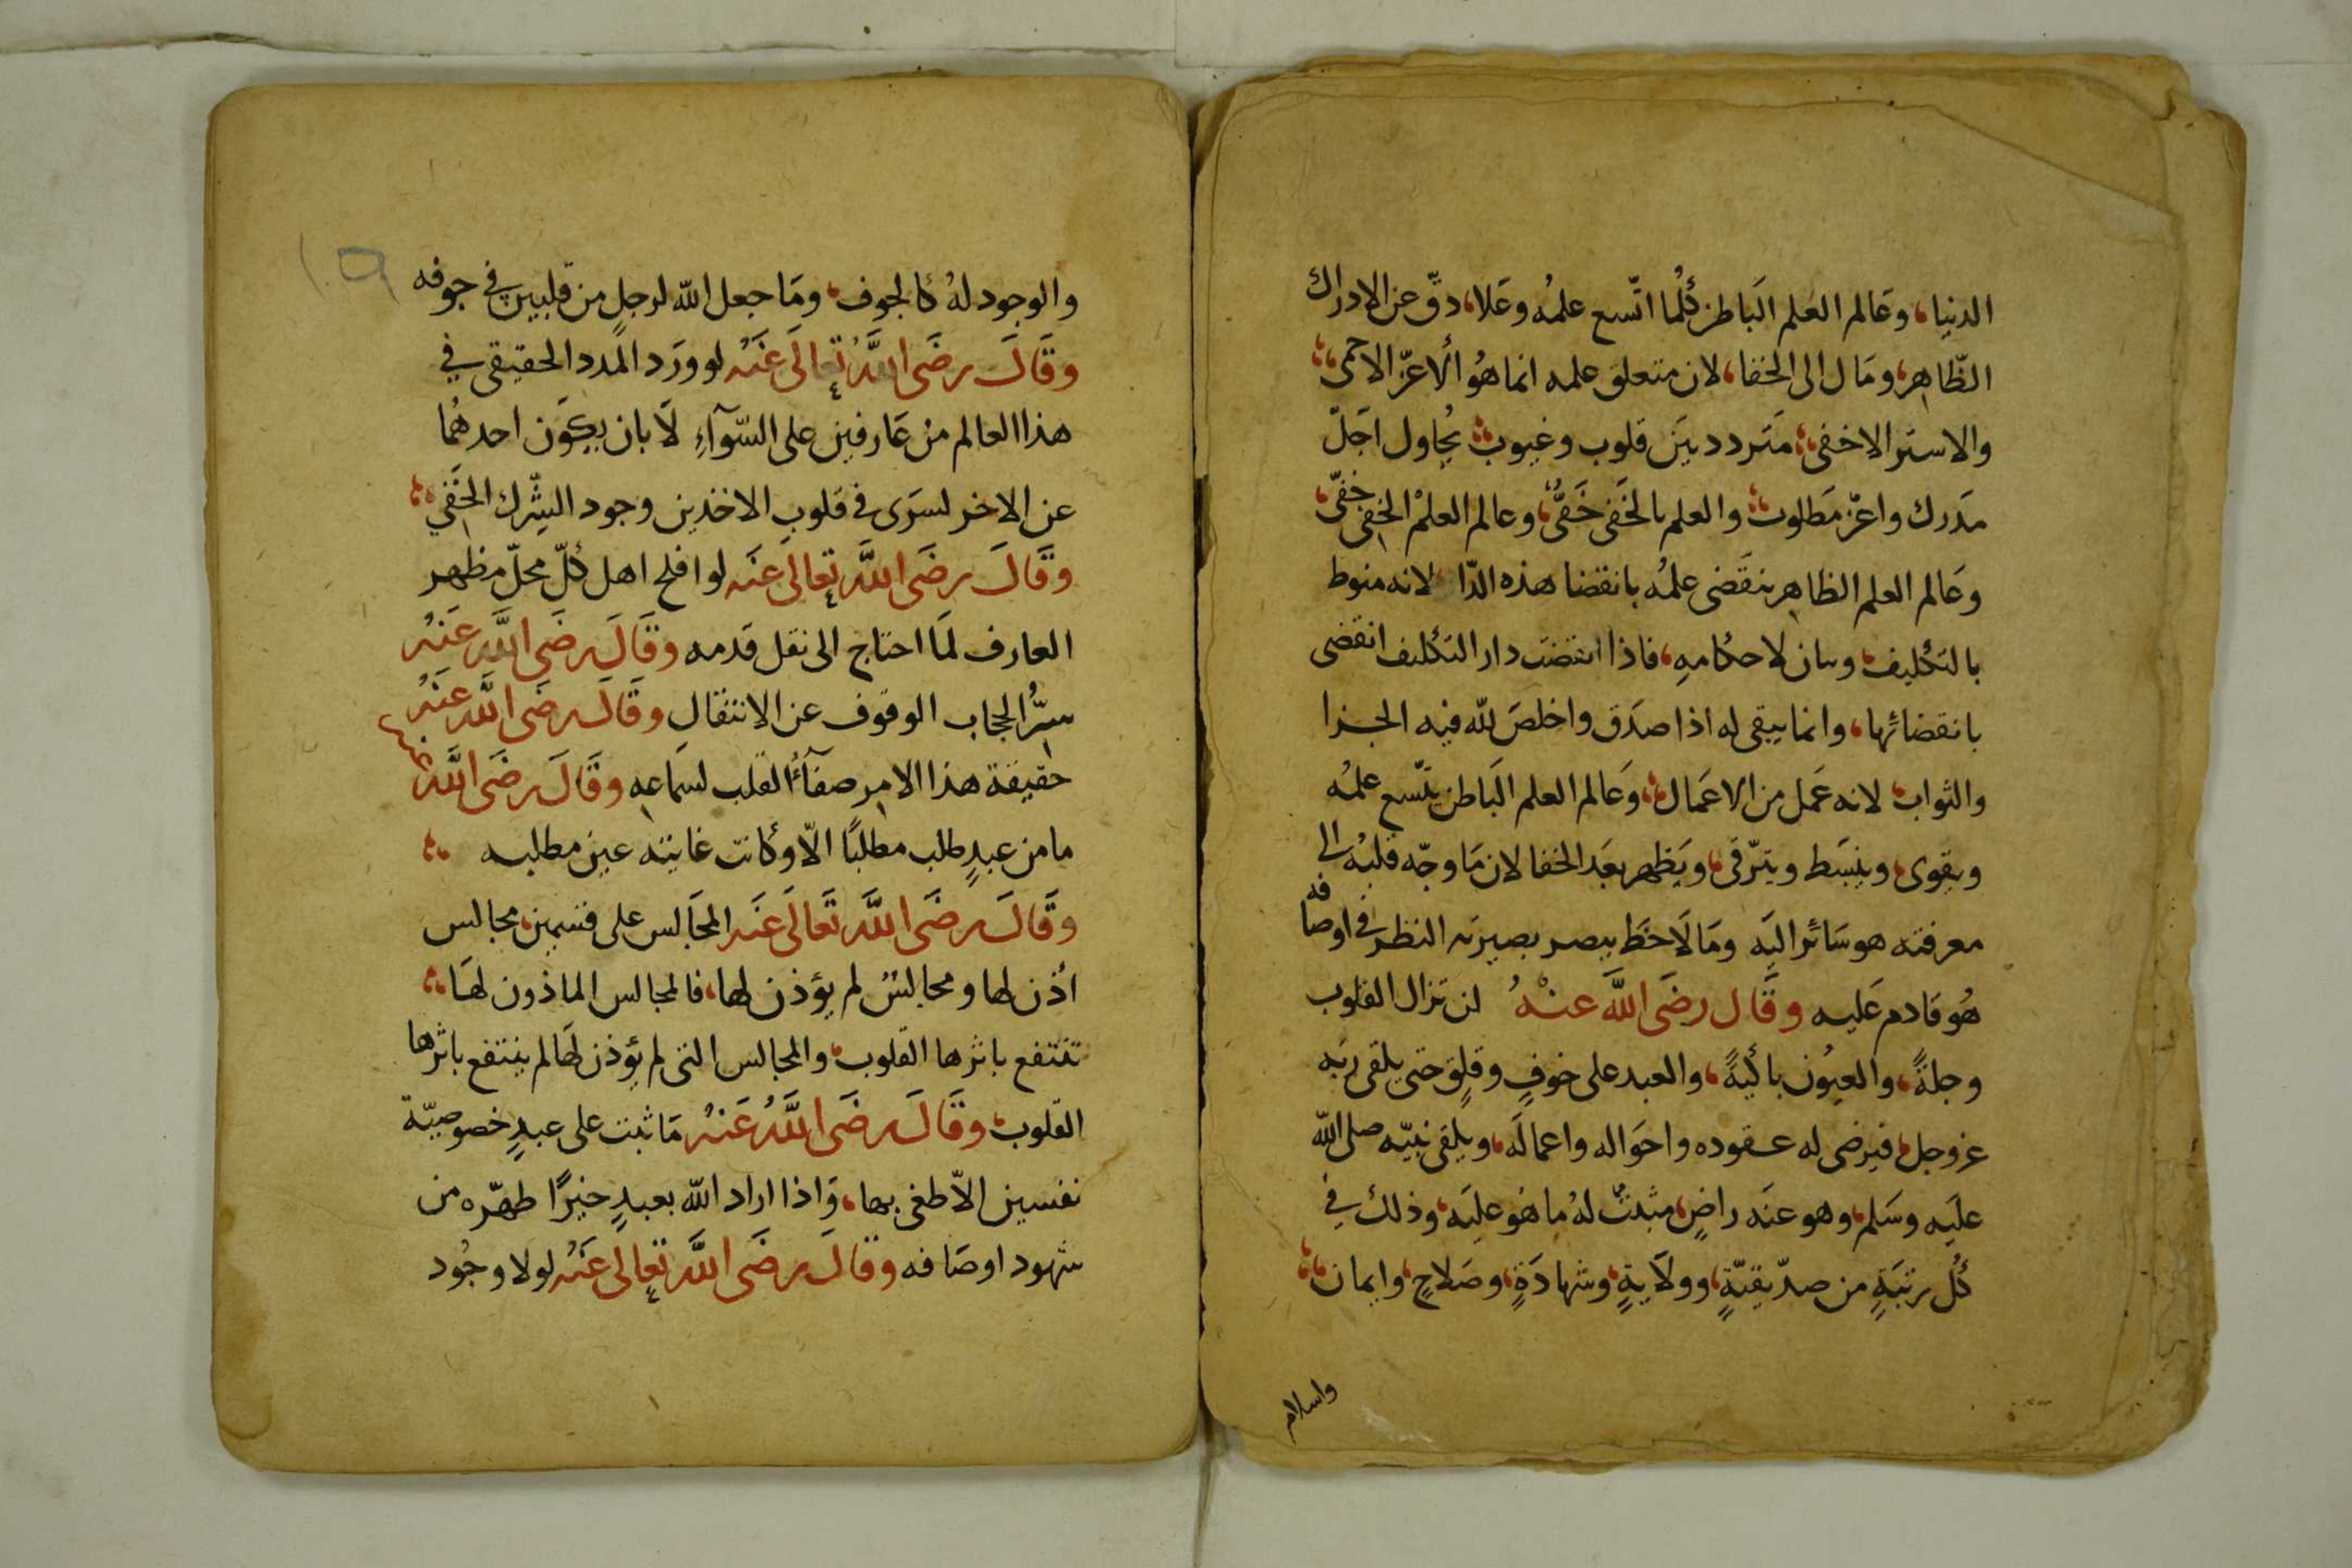 الدنيا، وعَالم العَلم البَاطن كُلما اتّسع علمُه وعَلا، دقّ عن الادراك
الظّاهِر، ومَال الى الخفا، لان متعلق علمه انما هُو الاعزّ الاحمى
والاستر الاخفى، مَتردد بَين قلوب وغيوب يُحاول اَجَلّ
مَدرك واعزّ مَطلوب، والعلم بالخَفى خَفىٌّ، وعالم العلمْ الخفِى خفىّ
وعَالم العلم الظاهِر ينقَضى علمُه بانقضا هذه الدّا لانه منوط
بالتكليف، وبيان لاحكامهِ، فاذا انقضت دار التكليف انقضى
بانقضائها، وانما يبقى له اذا صدَق واخلصَ لله فيه الجزا
والثواب، لانه عَمل من الاعمَال، وَعَالم العلم البَاطن يتّسع علمُه
ويقوى، وينبسَط ويترّقى، ويَظهر بعَد الخفا لان مَا وجّه قلبُه الى
معرفته هو سَائر اليَه ومَا لاَحَظ ببصر بصيرته النظر فى اوصافه
هُو قادم عَليه وقَال رضَى اللَّه عنْهُ لن تزال القلوب
وجلةً، والعيُون باكيةً، والعبد على خوفٍ وقلِق حتى يلقى ربّه
عز وجل، فيرضى له عقوده واحوَاله واعمالَه، ويلقى نبيّه صلى الله
عليَه وسَلم، وهو عنَه راضٍ، مثبتٌ لهُ ما هُو عليَه، وذلك فِي
كُل رتبَةٍ من صدّيقيّةٍ، وولاَيةٍ، وشهادَةٍ، وصَلاحٍ، وايمان،
واسلام
١٥
والوجود لهُ كالجوف، ومَا جعل الله لرجلٍ من قلبين فِى جوفه
وقَالَ رضَى اللَّهُ تعَالَى عَنَهُ لو ورَد المَدد الحقيقى في
هذا العالم منْ عَارفين على السّوآءِ لاَبان بكَون احدهُما
عن الاخر لسَرَى فى قلوبِ الاخذين وجود الشِّرك الخَفِي
وقَالَ رضَى اللَّه تعالى عنَه لو افلح اهل كلّ محلّ مظهر
العارف لمَا احتاج الى نقل قدمه وقَالَ رضَى اللَّه عَنهُ
سِرُّ الحجاب الوقوف عن الانتقال وقَالَ رضَى اللَّه عَنَهُ
حقيقة هذا الامر صفآءُ القلب لسَماعهِ وقَالَ رضَى اللَّهُ عنه
ما من عبدٍ طلب مطلبًا الاّ وكانت غايته عين مطلبه
وقَالَ رضَى اللَّه تَعالَى عَنَه المجَالس على قسمين، مجالس
اُذن لها ومجالسُ لم يؤذن لها، فالمجالس الماذون لهَا،
تنتفع باثرها القلوب، والمجالس التى لم يؤذن لهَا لم ينتفع باثرها
القلوب، وقَالَ رضَى اللَّهُ عَنهُ مَا ثبت على عبدٍ خصوصيّة
نفسين الاّ طغى بها، وَاذا اراد الله بعبدٍ خيرًا طهّره من
شهود اوصَافه وقَالَ رضَى اللَّه تعالى عَنَهُ لولا وجُود